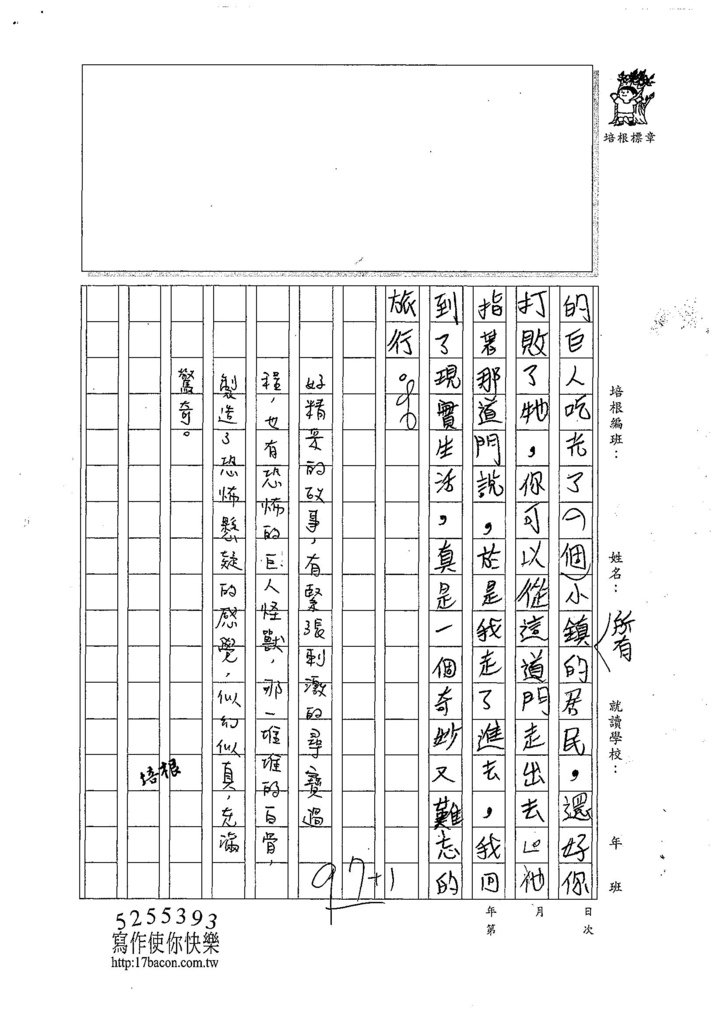 培根標章
培根編班： 姓名： 就讀學校： 年 班
所有
的巨人吃光了(一個)小鎮的居民，還好你
打敗了牠，你可以從這道門走出去」祂
指著那道門說，於是我走了進去，我回
到了現實生活，真是一個奇妙又難忘的
旅行。
好精采的故事，有緊張刺激的尋寶過
程，也有恐怖的巨人怪獸，那一堆堆的白骨，
製造了恐怖懸疑的感覺，似幻似真，充滿
驚奇。
培根
97+1
年 月 日
第 次
5255393
寫作使你快樂
http:17bacon.com.tw